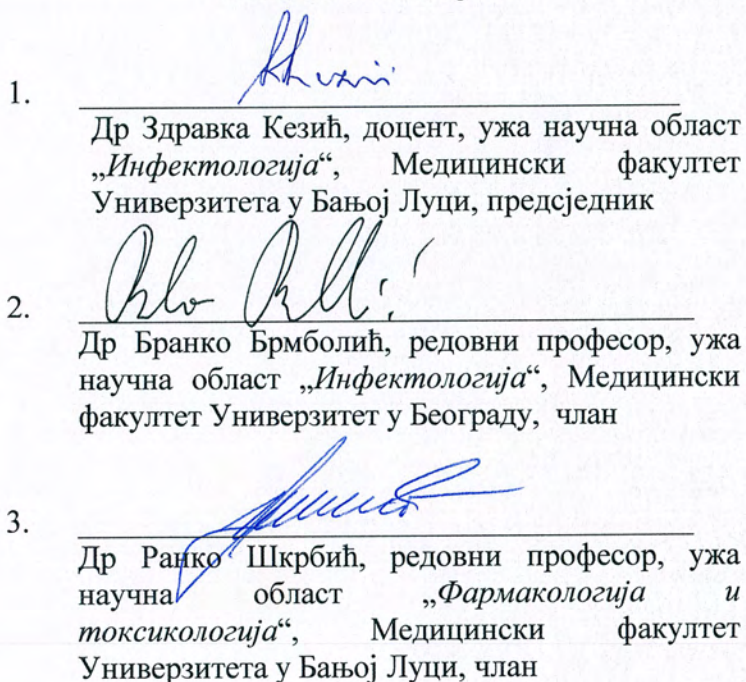 1.
Др Здравка Кезић, доцент, ужа научна област
„Инфектологија“, Медицински факултет
Универзитета у Бањој Луци, предсједник
2.
Др Бранко Брмболић, редовни професор, ужа
научна област „Инфектологија“, Медицински
факултет Универзитет у Београду, члан
3.
Др Ранко Шкрбић, редовни професор, ужа
научна област „Фармакологија и
токсикологија“, Медицински факултет
Универзитета у Бањој Луци, члан